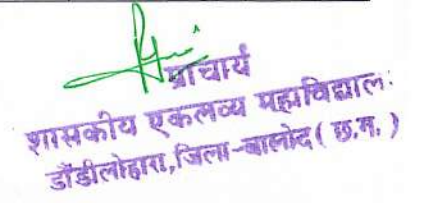 प्राचार्य
शासकीय एकलव्य महाविद्यालः
डौंडीलोहारा,जिला-बालोद ( छ.ग. )